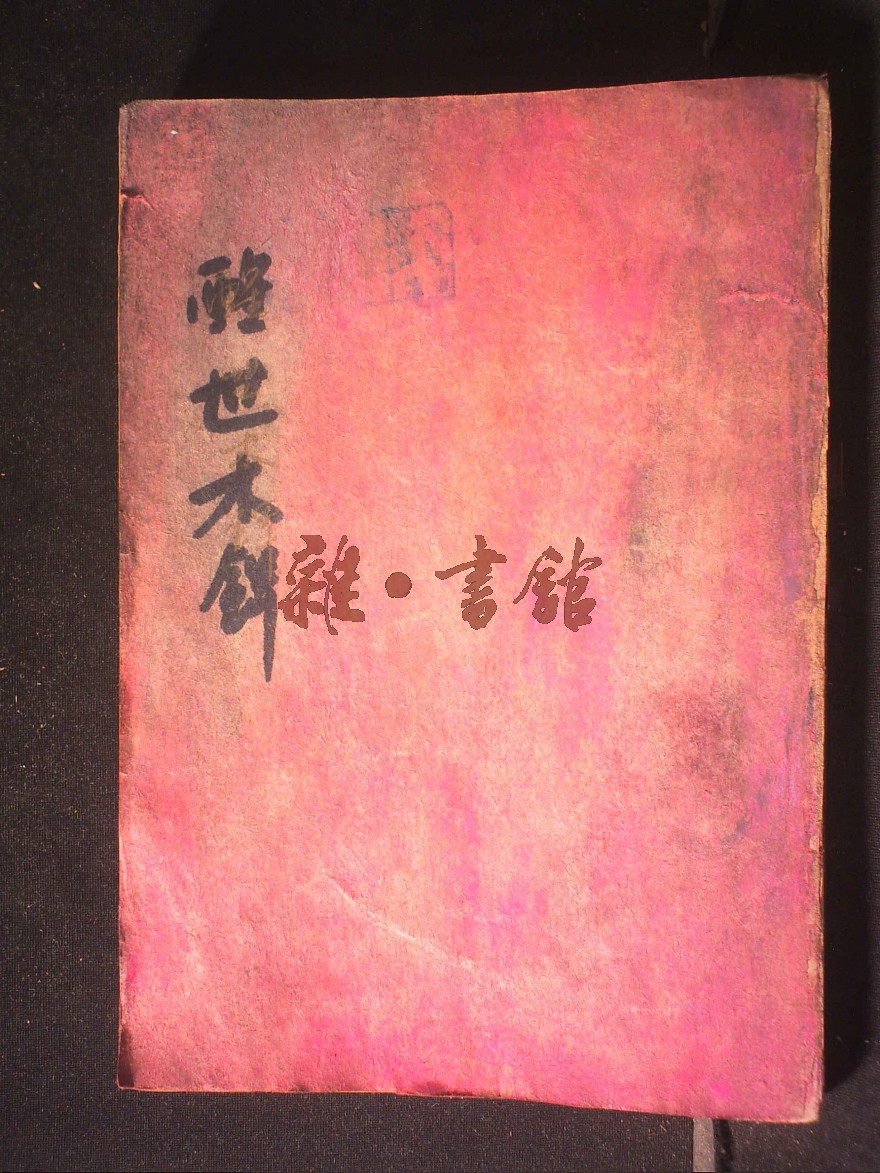 醒世木鐸
雜·書館